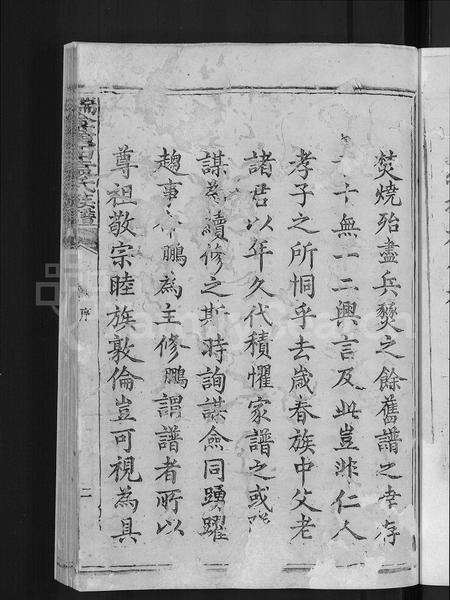 焚燒殆盡兵燹之餘舊譜之幸存
十無一二興言及此豈非仁人
孝子之所恫乎去歲春族中父老
諸君以年久代積懼家譜之或
謀為續修之斯時詢謀僉同踴躍
趨事命鵬為主修鵬謂譜者所以
尊祖敬宗睦族敦倫豈可視為具
序
二